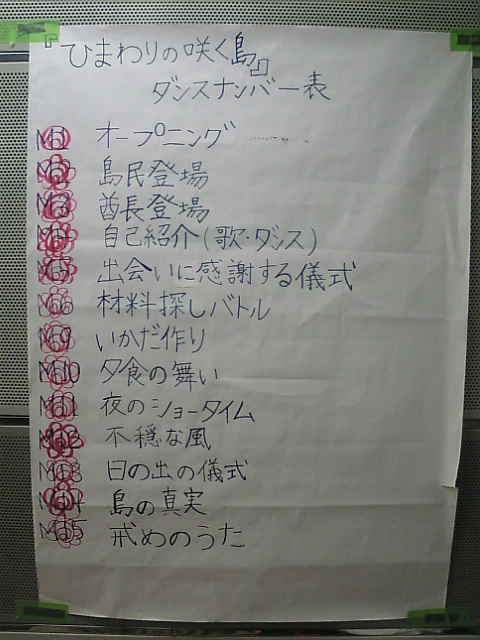 『ひまわりの咲く島』
ダンスナンバー表
M1 オープニング
M2 島民登場
M3 酋長登場
M4 自己紹介(歌・ダンス)
M5 出会いに感謝する儀式
M6 材料探しバトル
M9 いかだ作り
M10 夕食の舞い
M11 夜のショータイム
不穏な風
M13 日の出の儀式
M14 島の真実
M15 戒めのうた